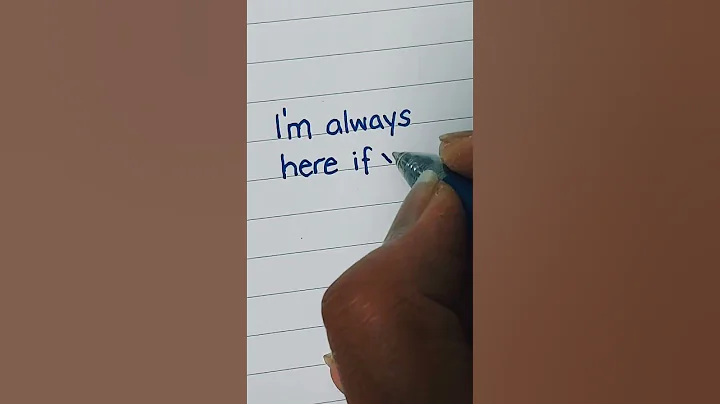 I'm always
here if